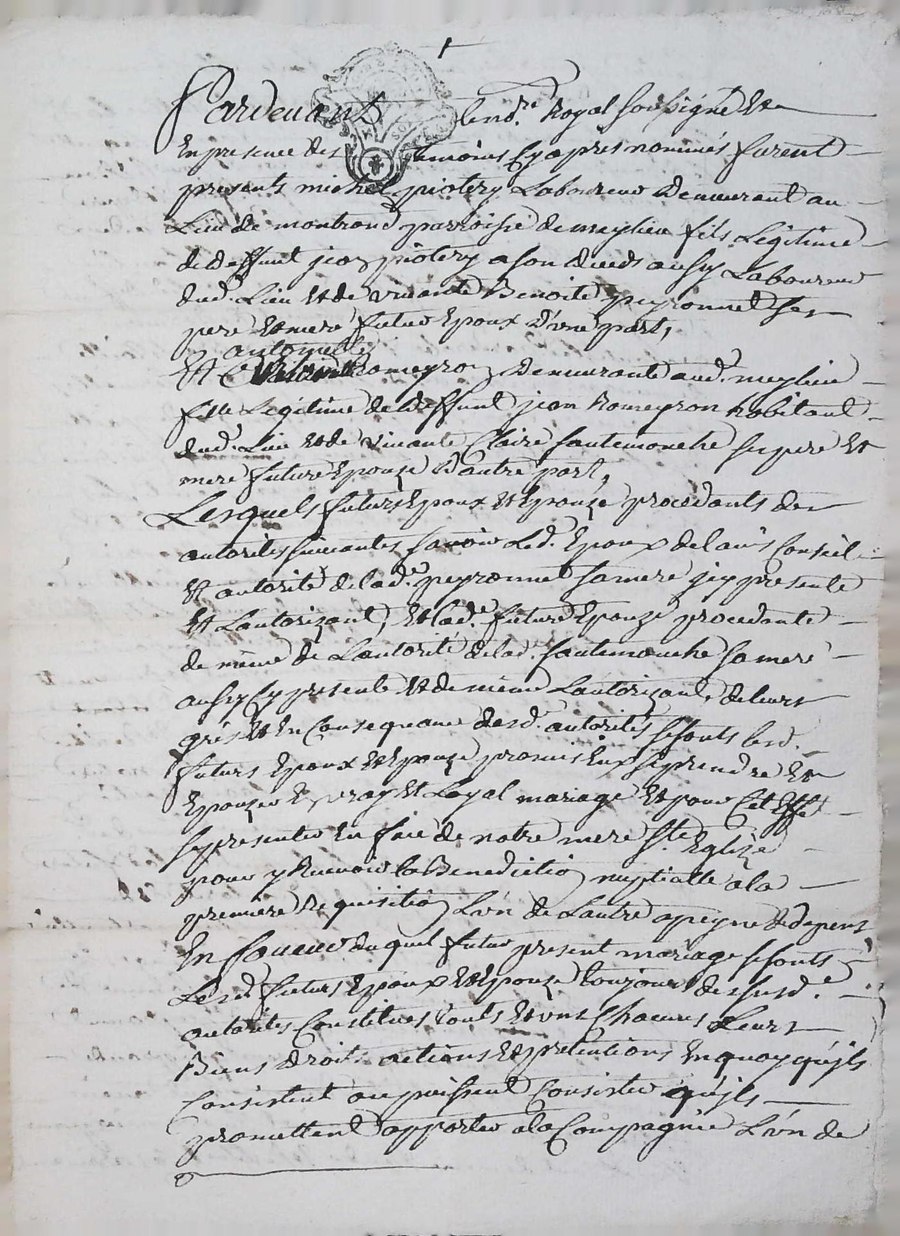 Pardevant le no.re Royal soussigné Et
En presence des temoins Cy apres nommés furent
presents michel piotery Laboureur Demeurant au
Lieu de montrond parroisse de meylieu fils Legitime
de Deffunt jean piotery a son deceds aussy Laboureur
dud. Lieu Et de vivante Benoite peyronnel ses
pere Et mere futur Epoux D'une part,
antoinette
Et Romeyron Demeurante aud. meylieu
fille Legitime de Deffunt jean Romeyron habitant
dud. Lieu Et de vivante Claire fautemouche ses pere Et
mere future Epouze D'autre part,
Lesquels futurs Epoux Et Epouze procedants des
autorités suivantes savoir Led. Epoux de l'avis Conseil
Et autorité de lad.e peyronnel sa mere jcy presente
Et Lautorizant, Et lad.e future Epouze procedante
de même de Lautorité de lad. fautemouche sa mere
aussy Cy presente Et de même Lautorizante, de leurs
grés Et En Consequance desd. autorités se sonts lesd.
futurs Epoux Et Epouze promis Eux se prendre Et
Epouzer En vray Et Loyal mariage Et pour Cet Effet
se presenter En face de notre mere Ste Eglize
pour y Recevoir la Benediction nuptialle a la
premiere Requisition L'un de Lautre a peyne de depens
En faveur duquel futur present mariage se sonts
Lesd. futurs Epoux Et Epouze toujours des susd.e
autorités Constitués touts Et uns Chacuns Leurs
Biens droits actions Et pretentions En quoy qu'jls
Consistent ou puissent Consister qu'jls
promettent apporter a la Compagnie L'un de